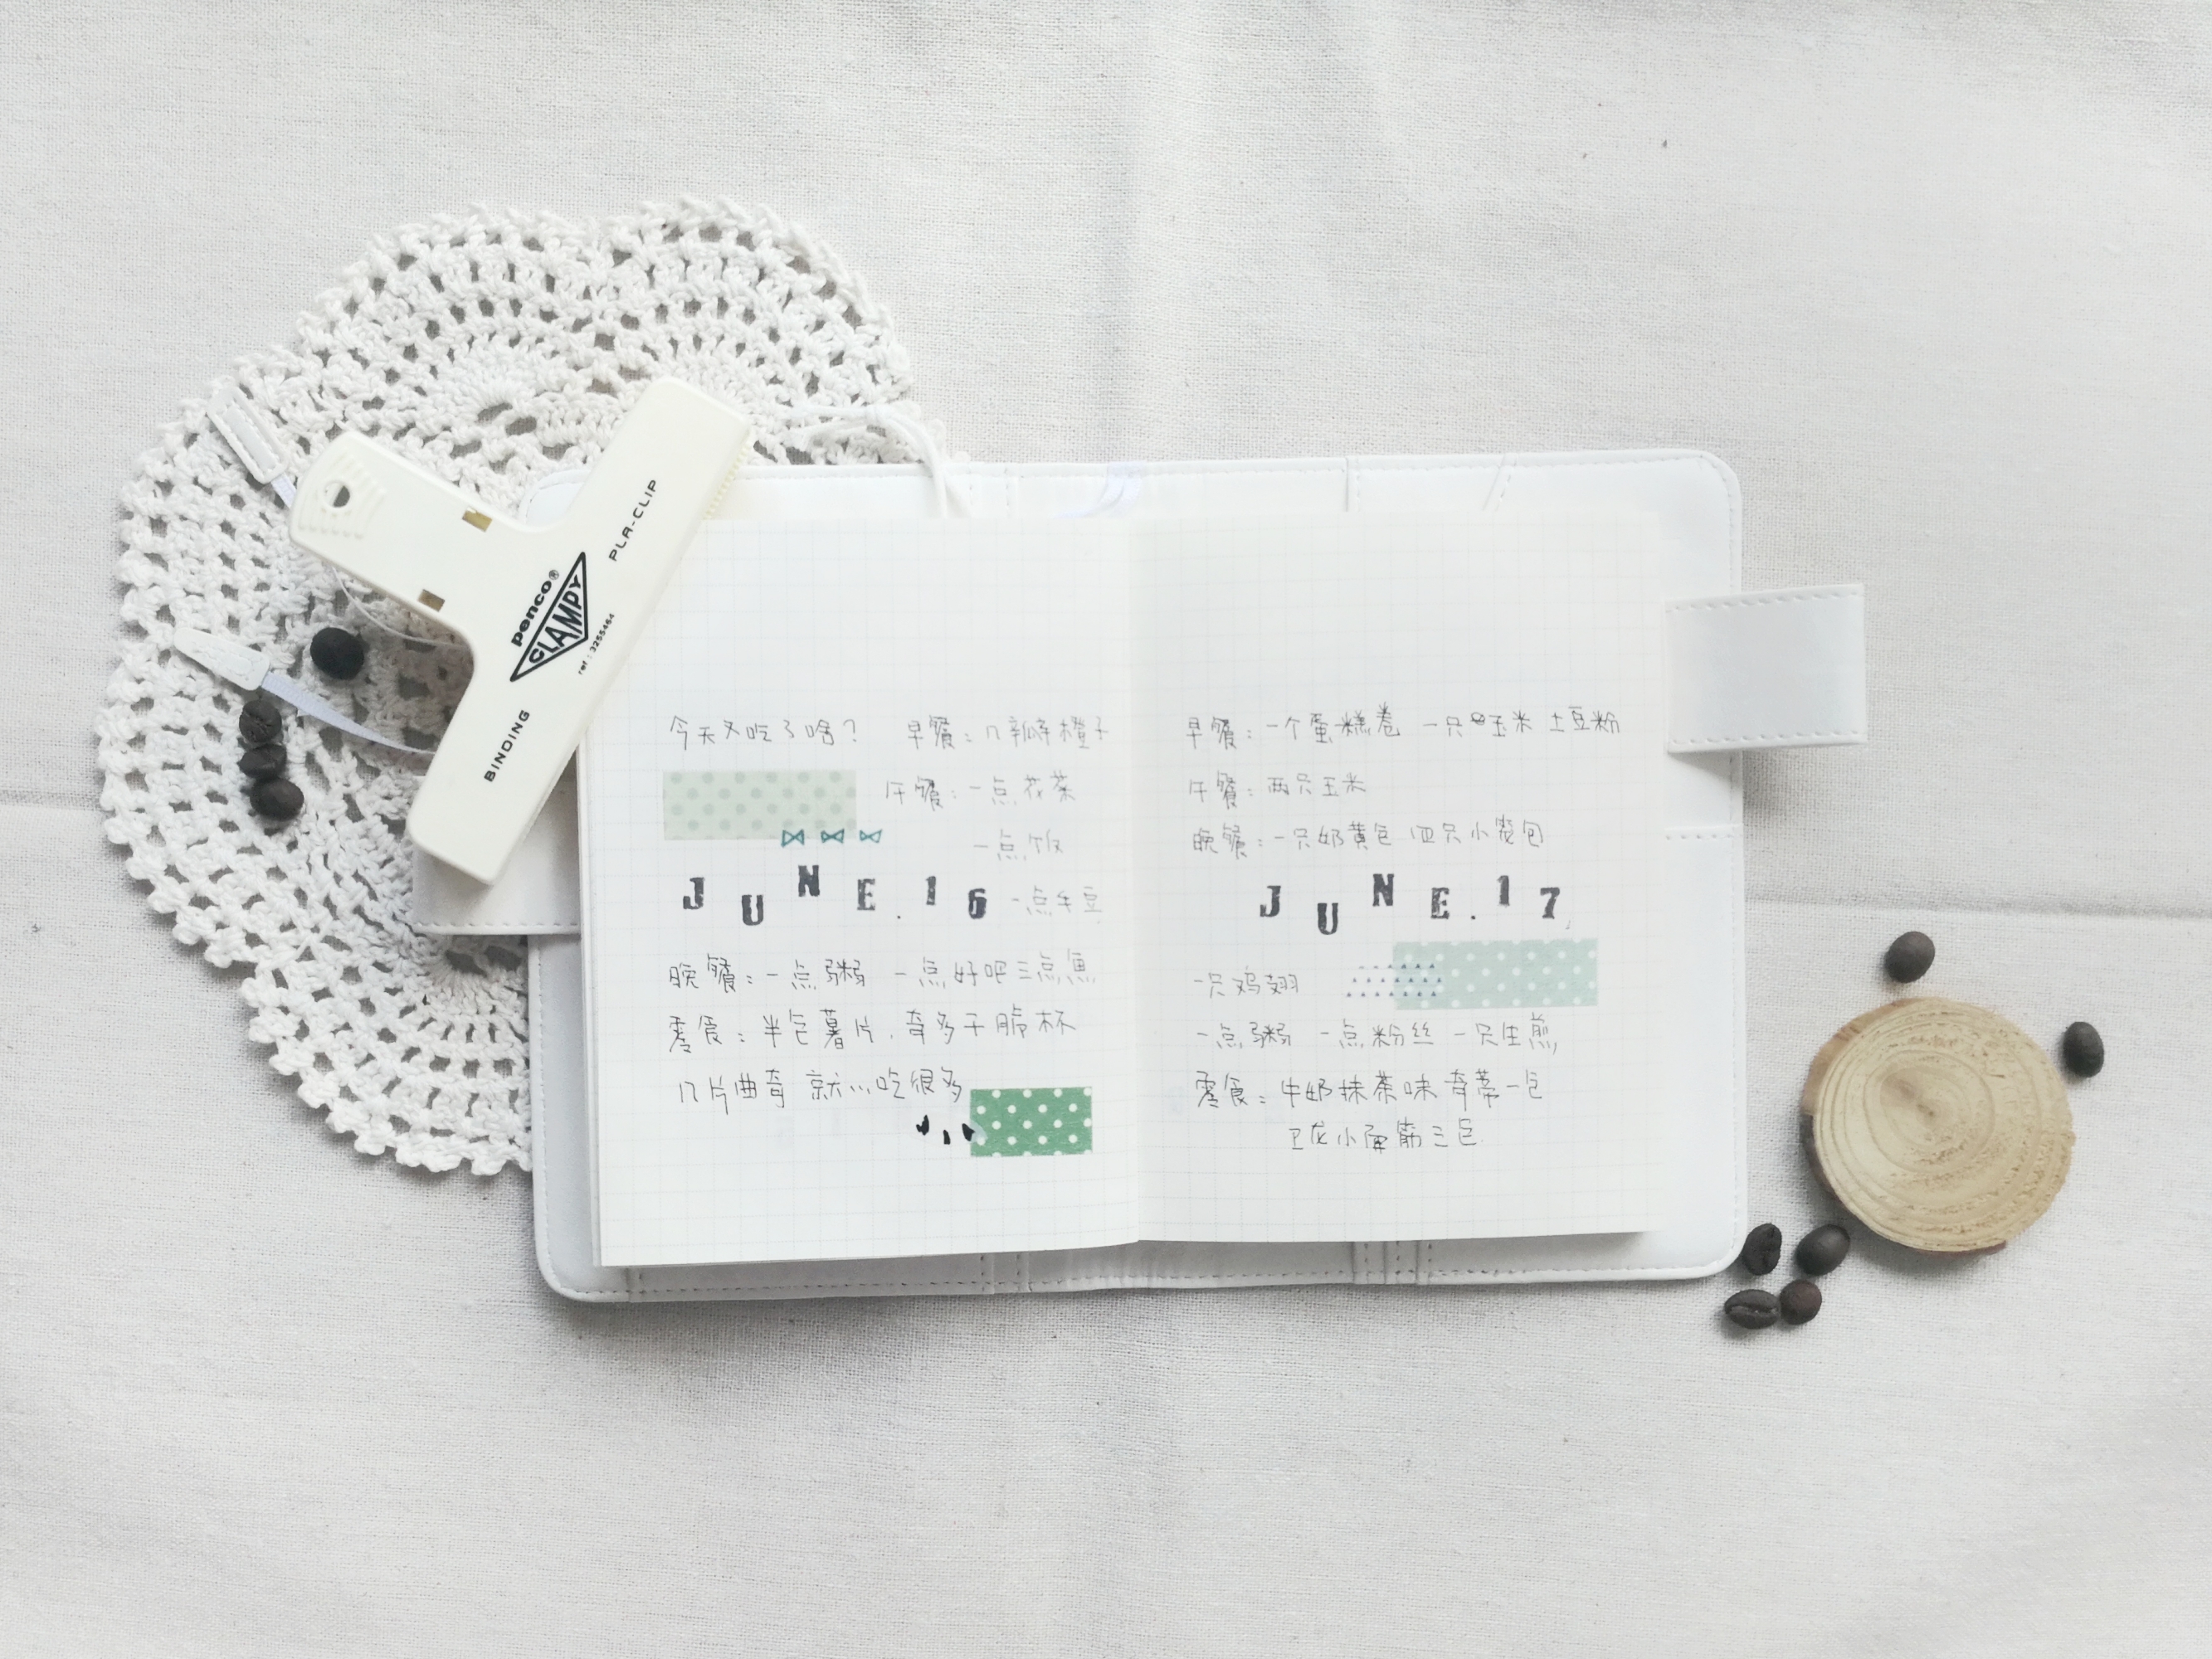 PLA-CLIP
penco®
CLAMPY
ref : 3255464
BINDING
今天又吃了啥？ 早餐：几瓣橙子
午餐：一点花茶
一点饭
JUNE.16 一点毛豆
晚餐：一点粥 一点好吧三点鱼
零食：半包薯片，奇多干脆杯
几片曲奇 就…吃很多
早餐：一个蛋糕卷 一只玉米 土豆粉
午餐：两只玉米
晚餐：一只奶黄包 四只小笼包
JUNE.17
一只鸡翅
一点粥 一点粉丝 一只生煎
零食：牛奶抹茶味奇蒂一包
卫龙小面筋三包